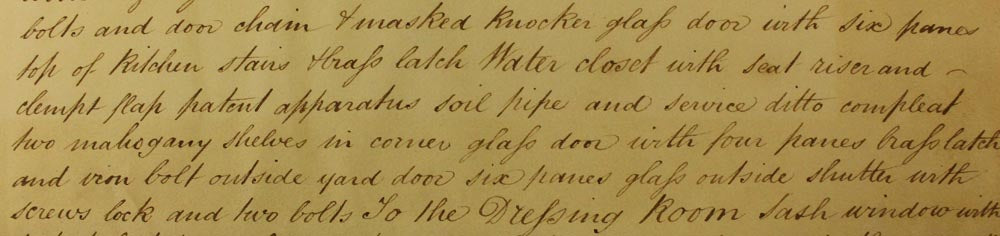 bolts and door chain & masked knocker glaſs door with six panes
top of kitchen stairs & braſs latch Water closet with seat riser and –
clempt flap patent apparatus soil pipe and service ditto compleat
two mahogany shelves in corner glaſs door with four panes braſs latch
and iron bolt outside yard door six panes glaſs outside shutter with
screws lock and two bolts To the Dreſsing Room Sash window with